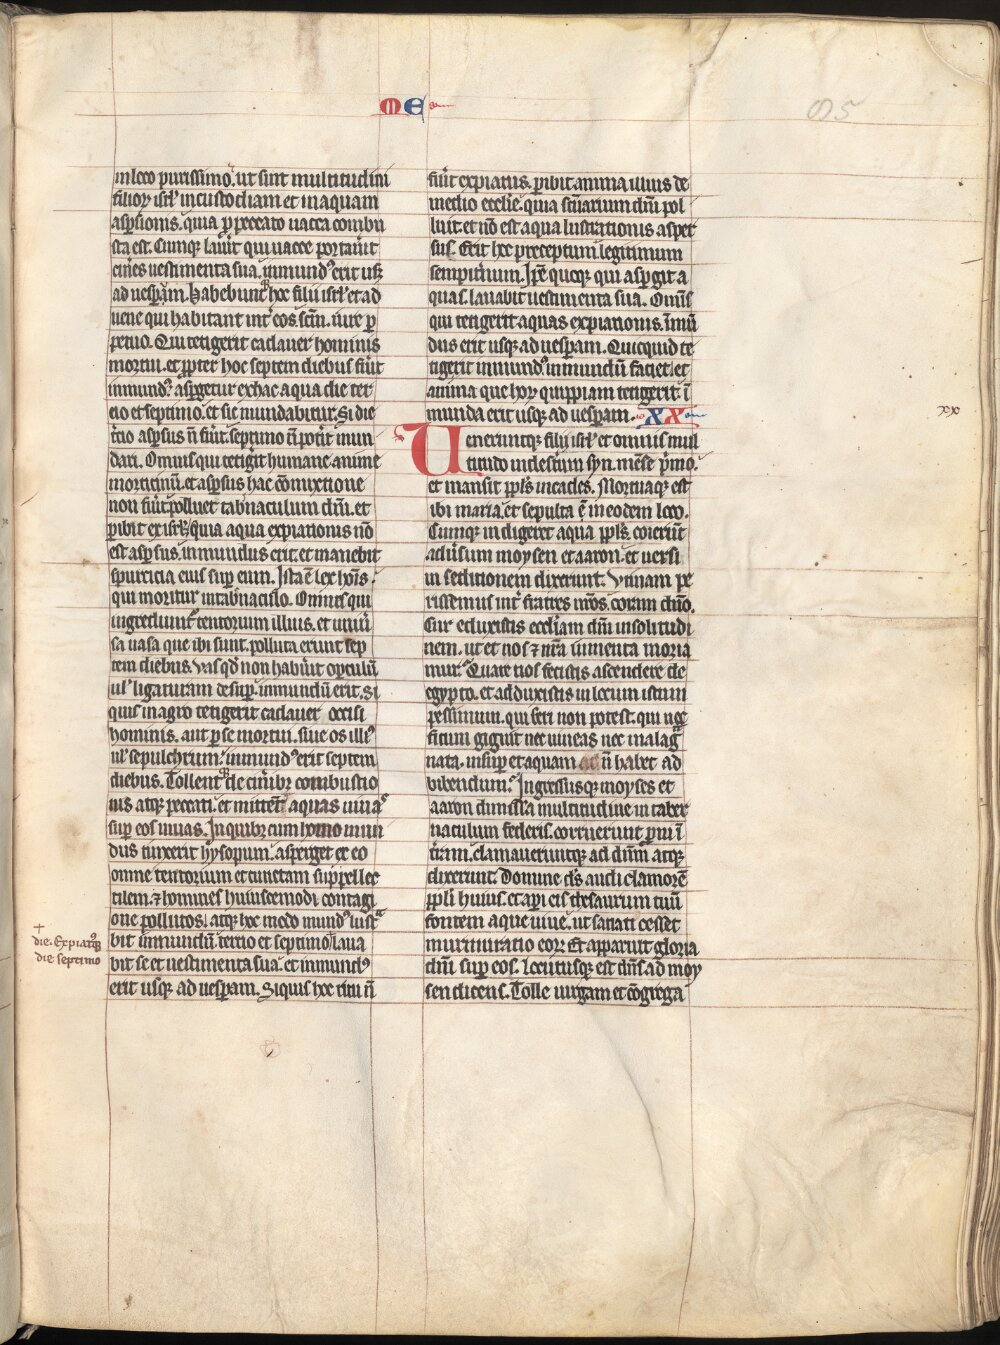 ME
95
in loco purissimo. ut sint multitudini
filioꝝ isrl' in custodiam et in aquam
aspsionis. quia p peccato uacca combu
sta est. Cumqꝫ lauit qui uacce portauit
cineres uestimenta sua. inmundꝰ erit usqꝫ
ad uespam. habebunt hoc filii isrl' et ad
uene qui habitant int' eos scm. iure p
petuo. Qui tetigerit cadauer hominis
mortui. et ppter hoc septem diebus fuit
inmundꝰ. aspgetur ex hac aqua die ter
cio et septimo. et sic mundabitur. Si die
tercio aspsus n̄ fuit. septimo n̄ potit mun
dari. Omnis qui tetigit humane anime
morticinū. et aspsus hac cōmixtione
non fuit. polluet tabnaculum dn̄i. et
pibit ex isrl'. quia aqua expiationis nō
est aspsus. inmundus erit. et manebit
spurcicia eius sup eum. Ista ē lex hoīs.
qui moritur in tabnaculo. Omnes qui
ingrediunt' tentorium illius. et uniū
sa uasa que ibi sunt. polluta erunt sep
tem diebus. Vas qd non habuit opculū
ul' ligaturam desup. inmundū erit. Si
quis in agro tetigerit cadauer occisi
hominis. aut p se mortui. siue os illiꝰ
ul' sepulchrum. inmundꝰ erit septem
diebus. Tollent de cinibꝫ combustio
nis atqꝫ peccati. et mittent aquas uiuas
sup eos uiuas. In quibꝫ cum homo mun
dus tinxerit hysopum. asperget ex eo
omne tentorium et cunctam suppellec
tilem. ⁊ homines huiuscemodi contagi
one pollutos. atqꝫ hoc modo mundꝰ lust
bit inmundū tercio et septimo laua
bit se et uestimenta sua. et inmundꝰ
erit usqꝫ ad uespam. Siquis hoc ritu n̄
die. Expiatꝰqꝫ
die septimo
fuit expiatus. pibit anima illius de
medio ecclie. quia scuarium dn̄i pol
luit. et nō est aqua lustrationis asper
sus. Erit hoc preceptum legitimum
sempitnum. Ipe quoqꝫ qui aspgit a
quas. lauabit uestimenta sua. Omīs
qui tetigerit aquas expiationis. īmū
dus erit usqꝫ ad uespam. Quicquid te
tigerit inmundꝰ inmundū faciet. et
anima que hoꝝ quippiam tetigerit. ī
munda erit usqꝫ ad uespam. XX
xx
Ueneruntqꝫ filii isrl' et omnis mul
titudo in desertum syn. mēse pmo.
et mansit ppls in cades. Mortuaqꝫ est
ibi maria. et sepulta ē in eodem loco.
Cumqꝫ indigeret aqua ppls. coierūt
aduisum moysen et aaron. et uersi
in seditionem dixerunt. Vtinam pe
rissemus int' fratres nr̄os. coram dn̄o.
Cur eduxistis eccliam dn̄i in solitudi
nem. ut et nos ⁊ nr̄a iumenta moria
mur. Quare nos fecistis ascendere de
egypto. et adduxistis in locum istum
pessimum. qui seri non potest. qui nec
ficum gignit nec uineas nec malag
nata. insup et aquam n̄ habet ad
bibendum. Ingressusqꝫ moyses et
aaron dimissa multitudine in taber
naculum federis. corruerunt pni ī
tram. clamaueruntqꝫ ad dn̄m atqꝫ
dixerunt. Domine ds audi clamorē
ppli huius. et api eis thesaurum tuū
fontem aque uiue. ut satiati cesset
murmuratio eoꝝ. Et apparuit gloria
dn̄i sup eos. Locutusqꝫ est dn̄s ad moy
sen dicens. Tolle uirgam et cōgrega